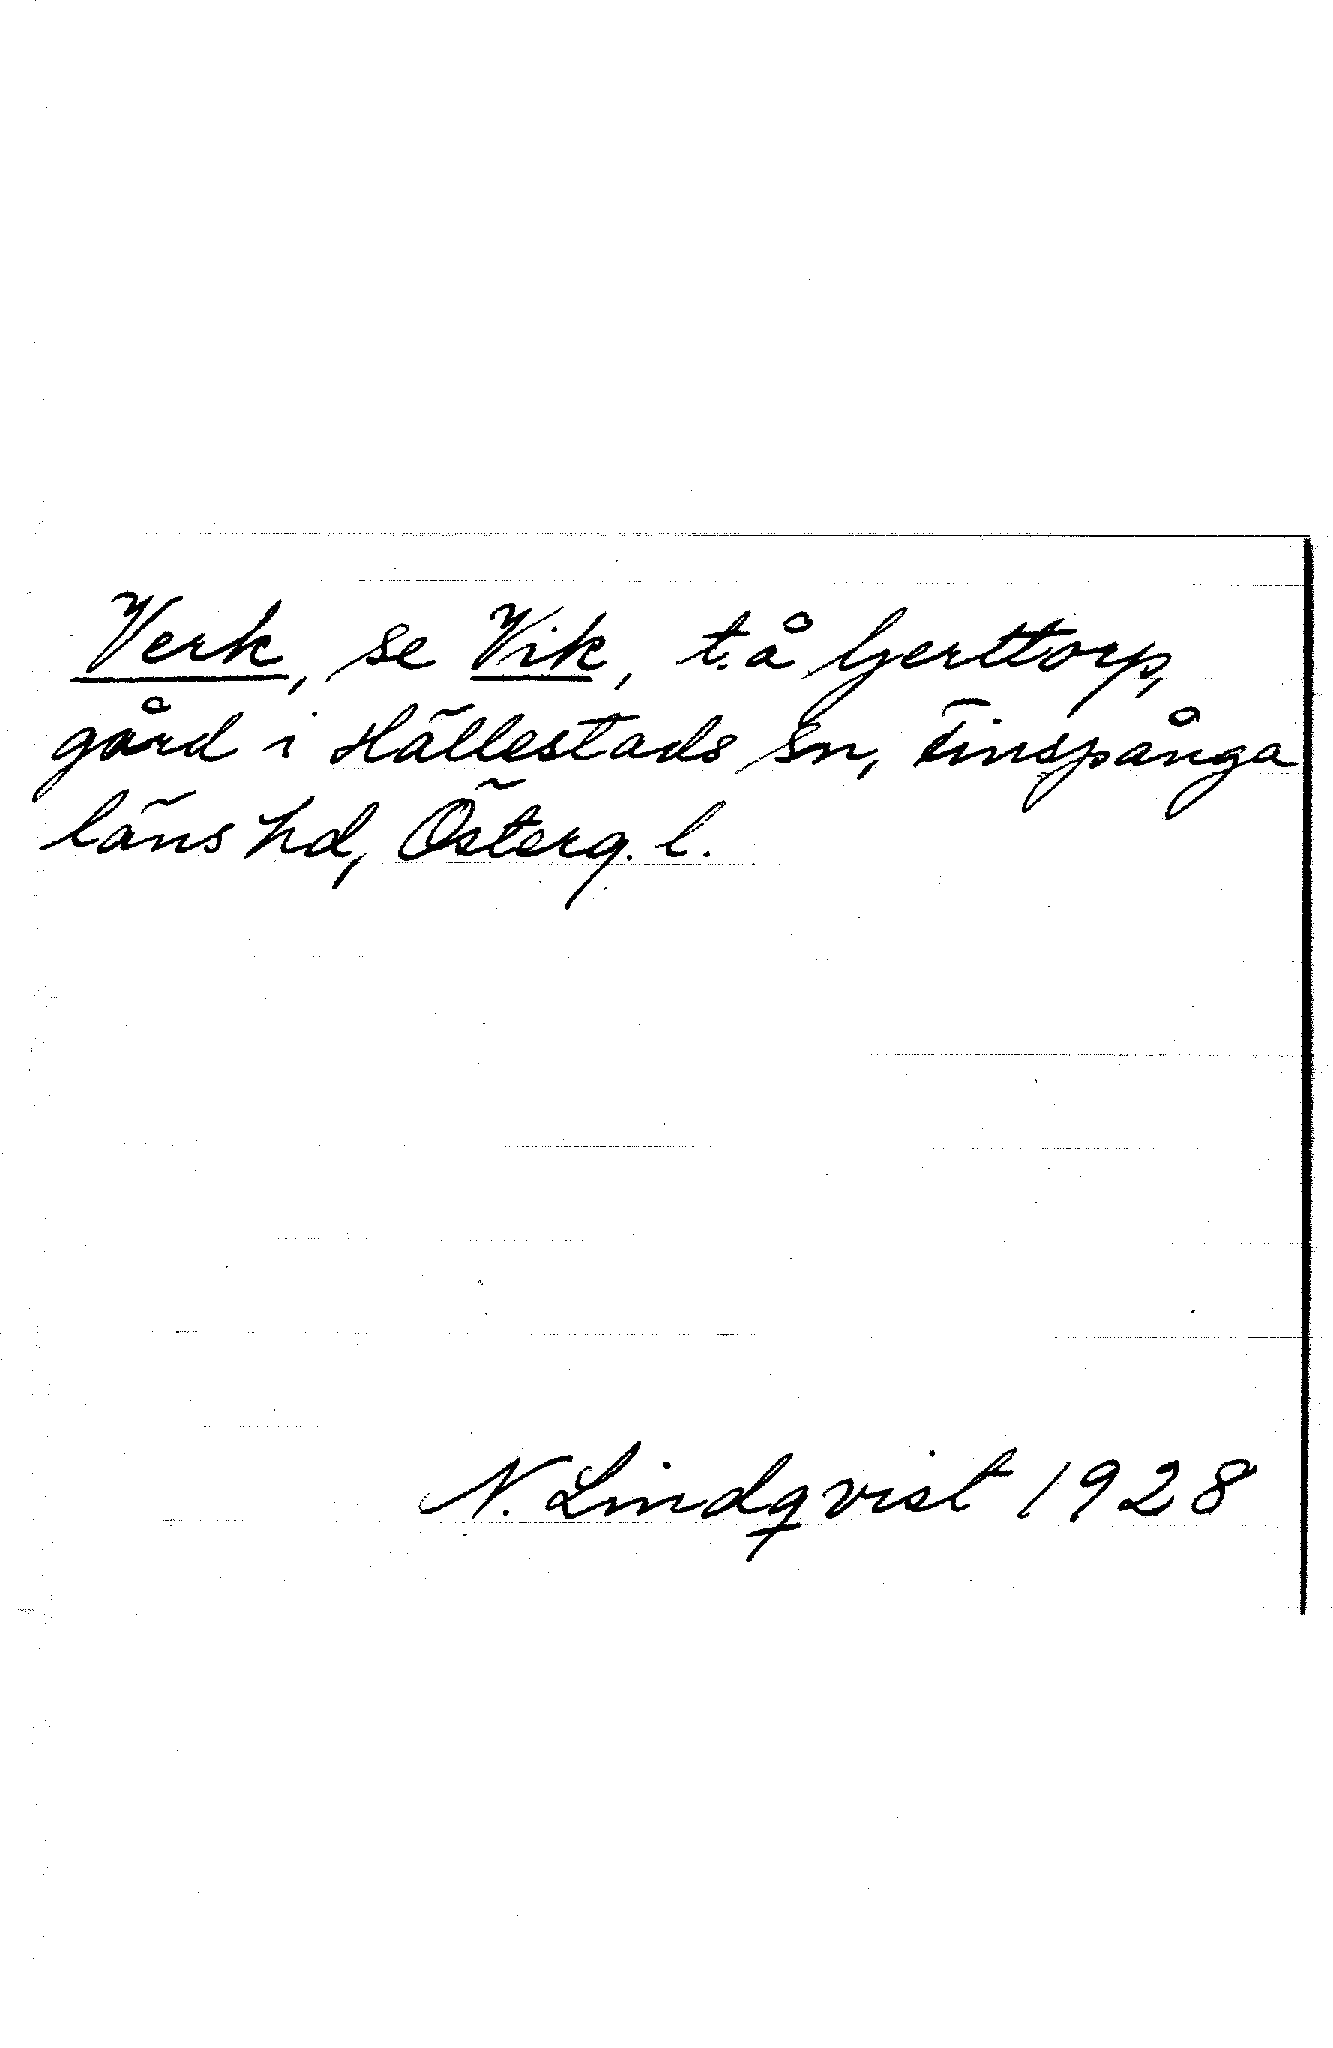 Verk, se Vik, t. å Gerttorp,
gård i Hällestads sn, Finspånga
läns hd, Österg. l.
N. Lindqvist 1928